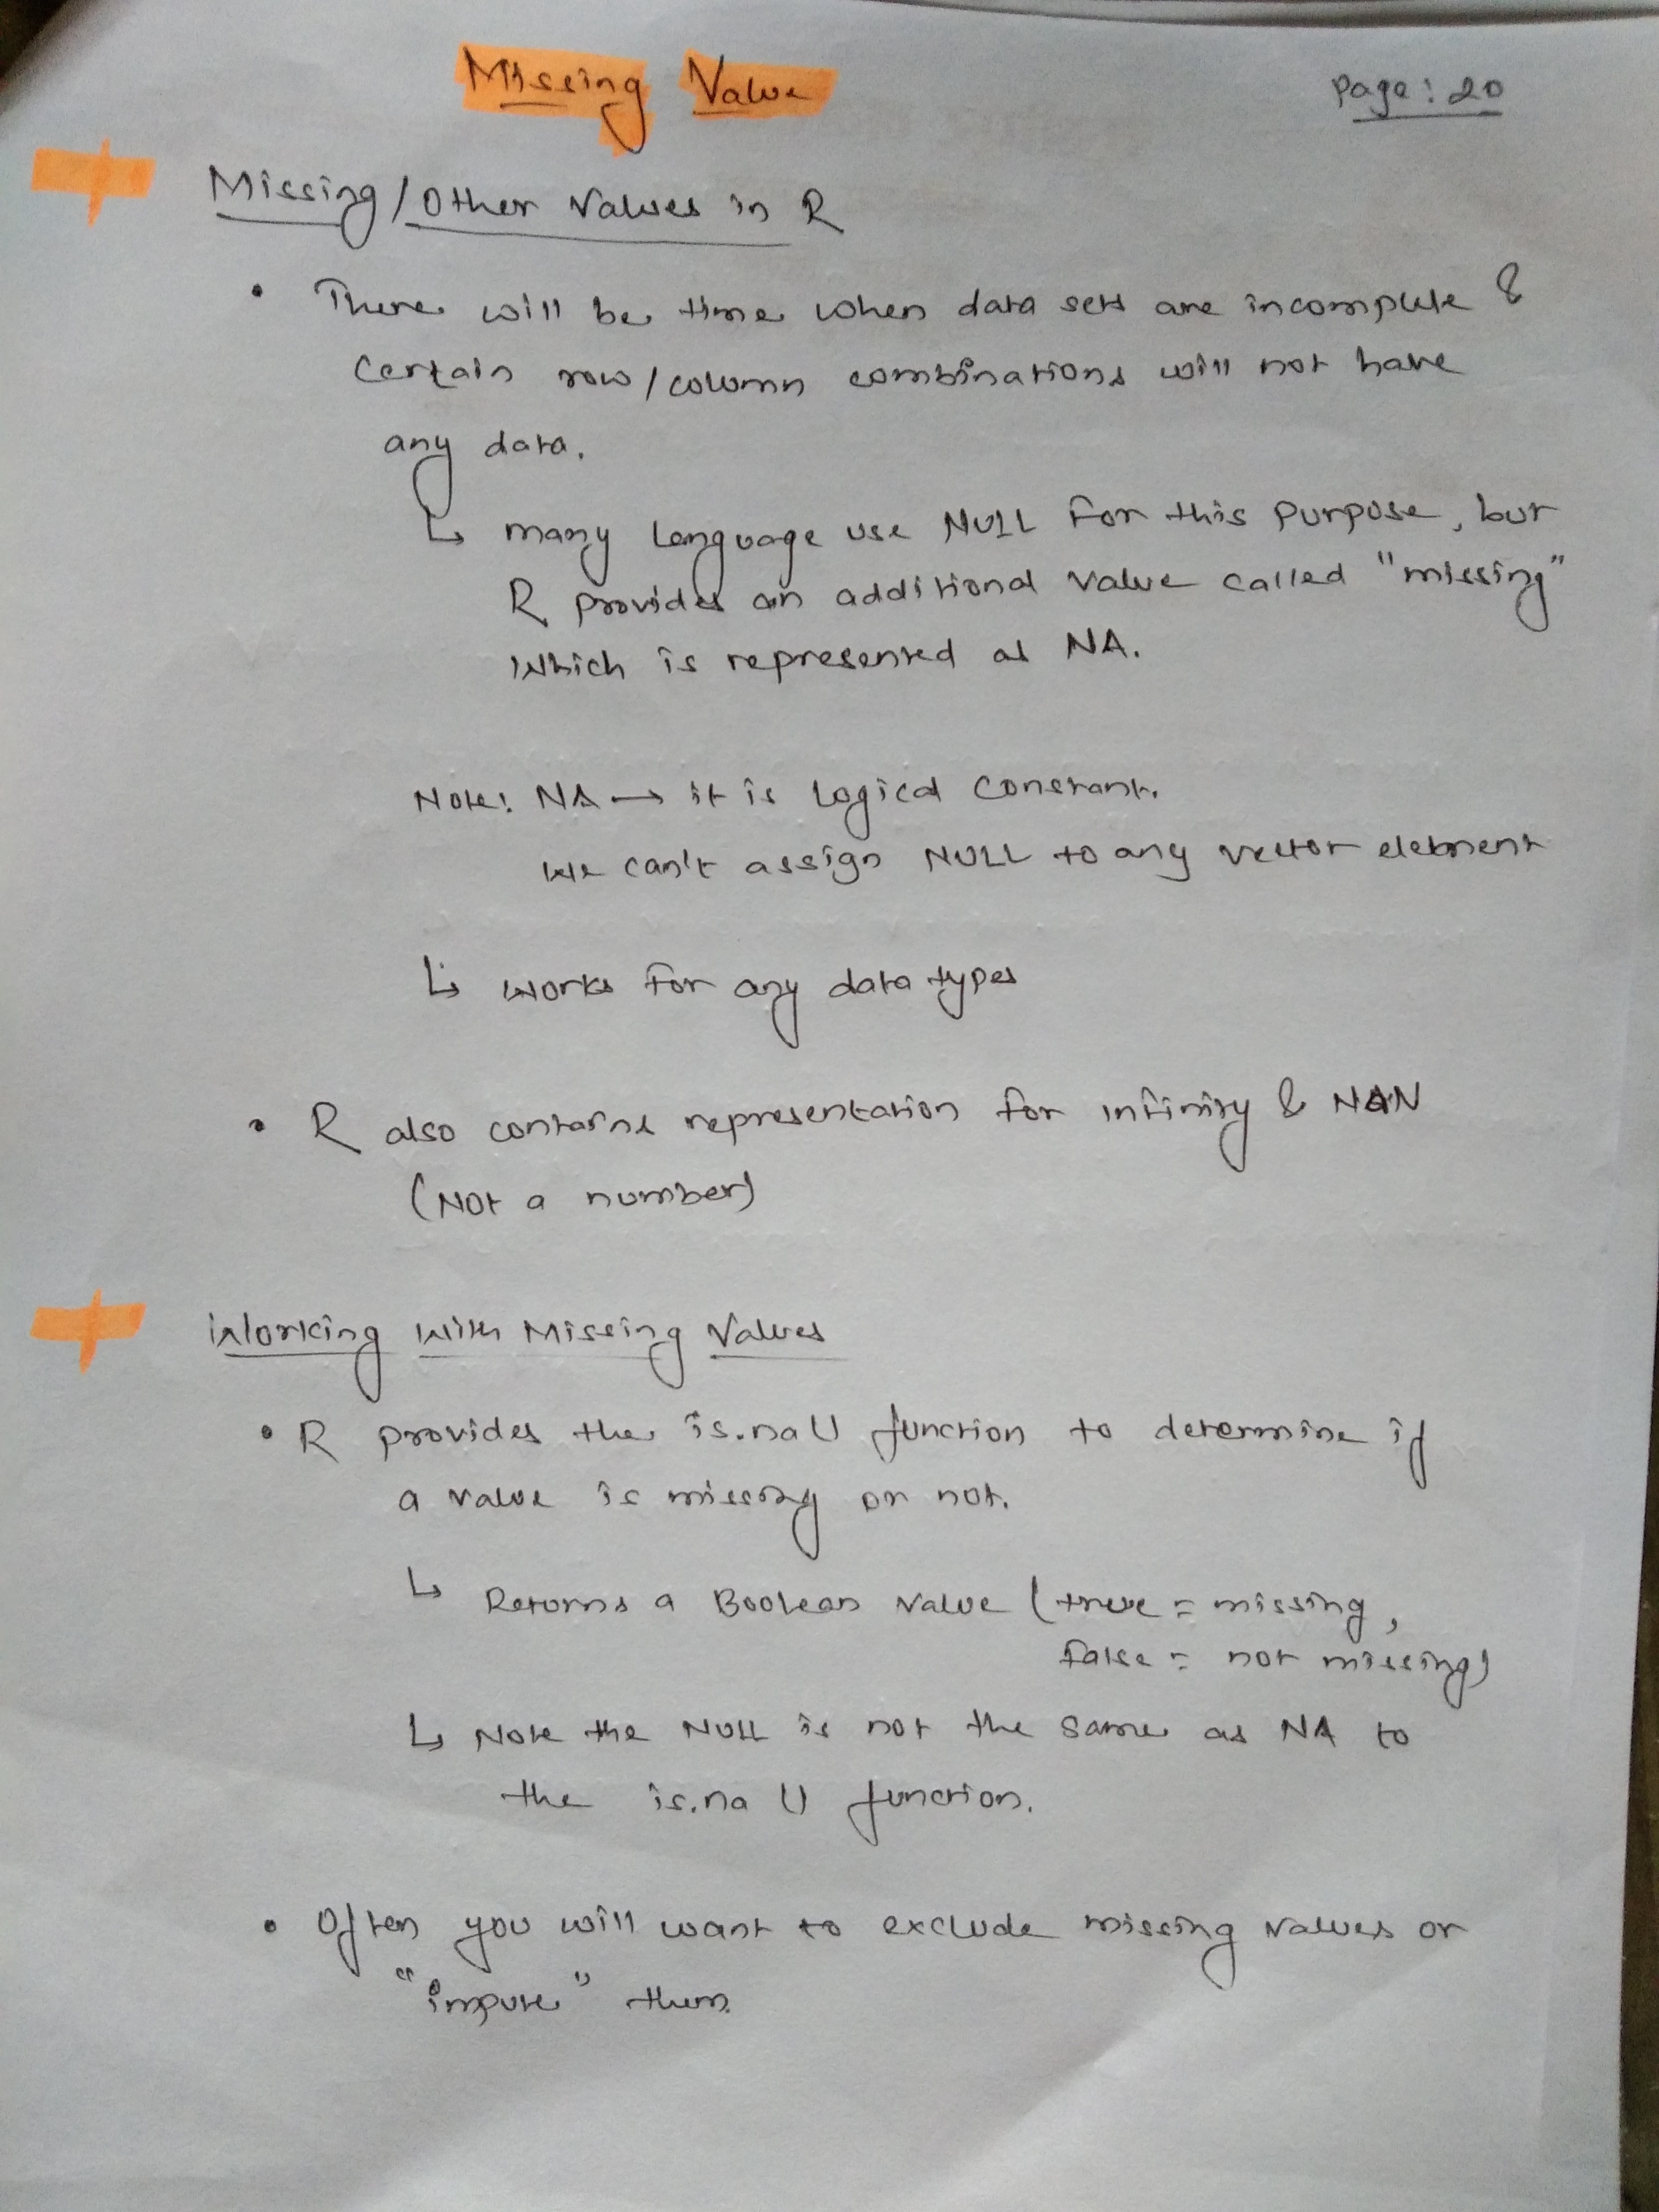 Missing Value
Page: 20
Missing/Other Values in R
• There will be time when data sets are incomplete &
certain row/column combinations will not have
any data.
↳ many language use NULL for this purpose, but
R provides an additional value called "missing"
which is represented as NA.
Note: NA → it is logical constant.
We can't assign NULL to any vector element
↳ works for any data types
• R also contains representation for infinity & NAN
(Not a number)
Working with Missing Values
• R provides the is.na() function to determine if
a value is missing or not.
↳ Returns a Boolean value (true = missing,
false = not missing)
↳ Note the NULL is not the same as NA to
the is.na() function.
• Often you will want to exclude missing values or
"impute" them